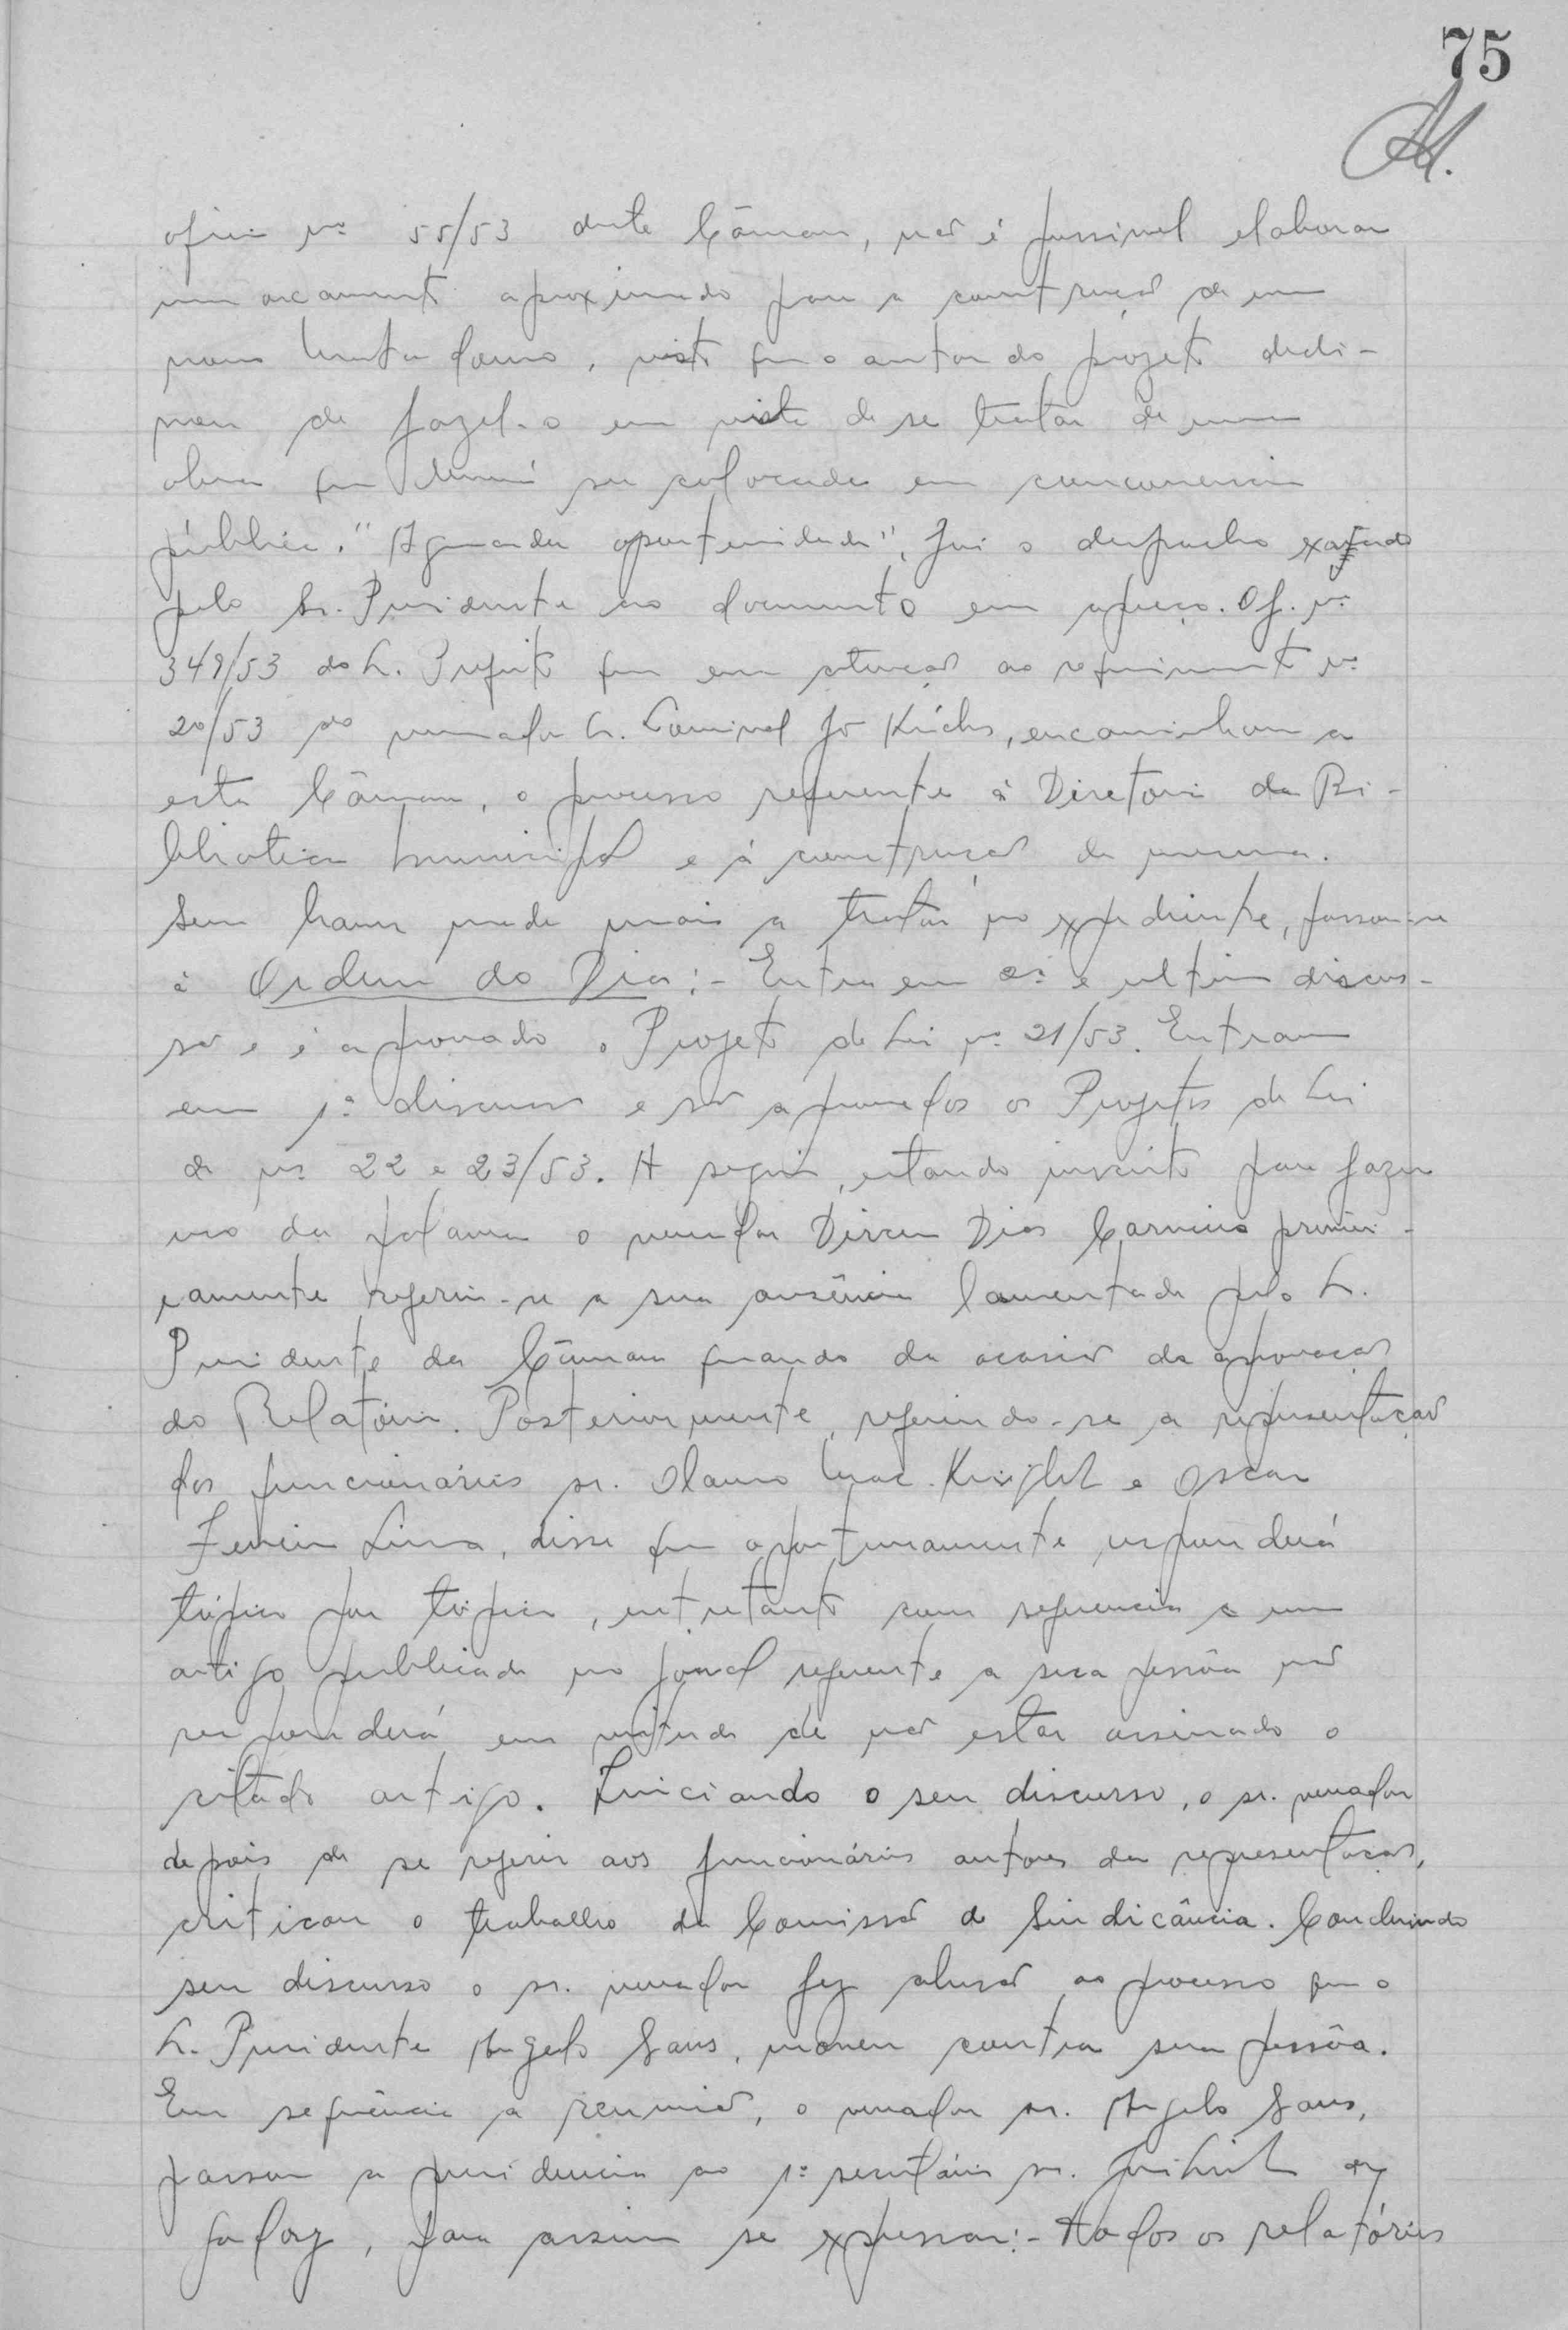 75
ofício nº 55/53 desta Câmara, não é possível elaborar
um orcamento aproximado para a construção de um
novo matadouro, visto que o autor do projeto decli-
nou de fazel-o em vista de se tratar de uma
obra que deverá ser colocada em concorrencia
pública. "Aguarda oportunidade", foi o despacho exarado
pelo Sr. Presidente no documento em apreço. Of. nº
349/53 do Sr. Prefeito que em atenção ao requerimento nº
20/53 do vereador Sr. Lourival, encaminhou a
esta Câmara, o processo referente à Diretoria da Bi-
blioteca Municipal e à construção da mesma.
Sem haver nada mais a tratar no expediente, passou-se
à Ordem do Dia:- Entra em 2ª e ultima discus-
são e é aprovado o Projeto de Lei nº 21/53. Entram
em 1ª discussão e são aprovados os Projetos de Lei
de nº 22 e 23/53. A seguir, estando inscrito para fazer
uso da palavra o vereador Dirceu Dias Carneiro primei-
ramente referiu-se a sua ausência lamentada pelo Sr.
Presidente da Câmara quando da ocasião da aprovação
do Relatório. Posteriormente, referindo-se a representação
dos funcionários sr. Olavo Mac. Knight e Oscar
Ferreira Lima, disse que oportunamente responderá
tópico por tópico, entretanto com referencia a um
artigo publicado no jornal referente a sua pessôa não
responderá em virtude de não estar assinado o
citado artigo. Iniciando o seu discurso, o sr. vereador
depois de se referir aos funcionários autores da representação,
criticou o trabalho da Comissão de Sindicância. Concluindo
seu discurso o sr. vereador fez alusão ao processo que o
Sr. Presidente Angelo Sans, moveu contra sua pessôa.
Em sequência a reunião, o vereador sr. Angelo Sans,
passou a presidencia ao 1º secretário sr.
Godoy, para assim se expressar:- A todos os relatórios